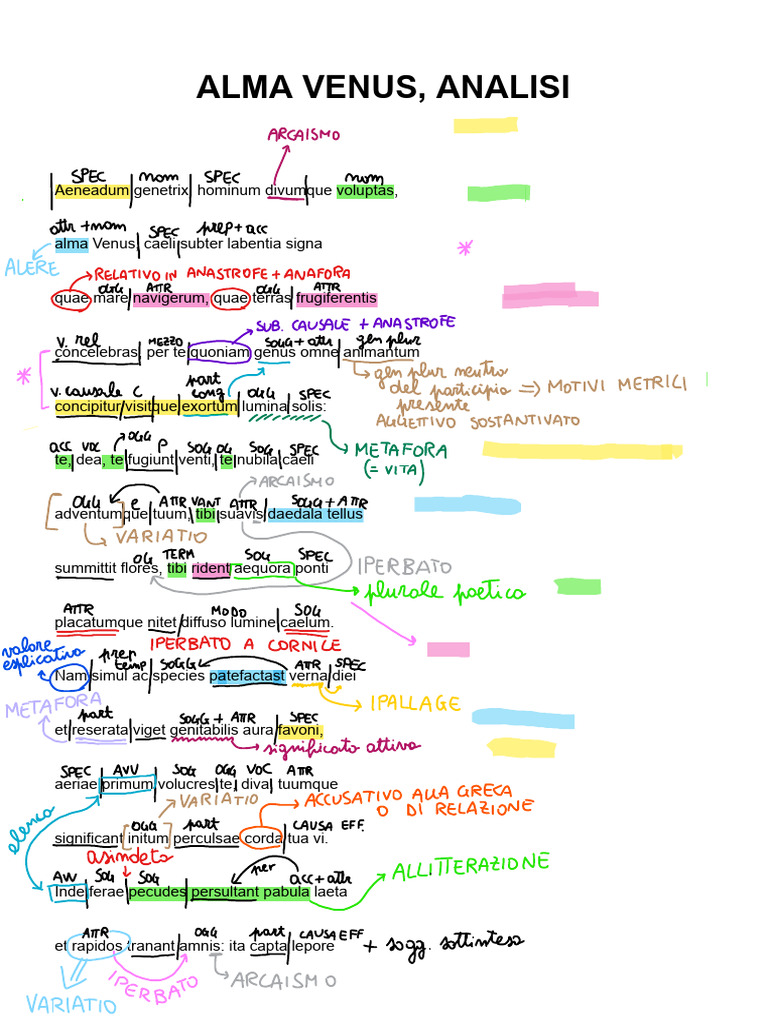 ALMA VENUS, ANALISI
ARCAISMO
SPEC nom SPEC nom
Aeneadum genetrix hominum divumque voluptas,
attr + nom SPEC prep + acc
alma Venus, caeli subter labentia signa
ALERE
RELATIVO IN ANASTROFE + ANAFORA
OGG ATTR OGG ATTR
quae mare navigerum, quae terras frugiferentis
SUB. CAUSALE + ANASTROFE
v. rel MEZZO SOGG + attr gen plur
concelebras per te quoniam genus omne animantum
gen plur neutro
del participio => MOTIVI METRICI
presente
AGGETTIVO SOSTANTIVATO
v. causale C part cong OGG SPEC
concipitur visitque exortum lumina solis:
METAFORA
(= VITA)
ACC VOC OGG P SOG OG SOG SPEC
te, dea, te fugiunt venti, te nubila caeli
ARCAISMO
OGG e ATTR VANT ATTR SOGG + ATTR
adventumque tuum, tibi suavis daedala tellus
VARIATIO
OG TERM SOG SPEC
summittit flores, tibi rident aequora ponti
IPERBATO
plurale poetico
ATTR MODO SOG
placatumque nitet diffuso lumine caelum.
IPERBATO A CORNICE
valore
esplicativo
prep temp SOGG ATTR SPEC
Nam simul ac species patefactast verna diei
IPALLAGE
METAFORA
part SOGG + ATTR SPEC
et reserata viget genitabilis aura favoni,
significato attivo
SPEC AVV SOG OGG VOC ATTR
aeriae primum volucres te, diva, tuumque
VARIATIO
ACCUSATIVO ALLA GRECA
O DI RELAZIONE
elenco
OGG part CAUSA EFF.
significant initum perculsae corda tua vi.
asindeto
AVV SOG SOG per acc + attr
Inde ferae pecudes persultant pabula laeta
ALLITTERAZIONE
ATTR OGG part CAUSA EFF
et rapidos tranant amnis: ita capta lepore + sogg. sottinteso
IPERBATO
ARCAISMO
VARIATIO